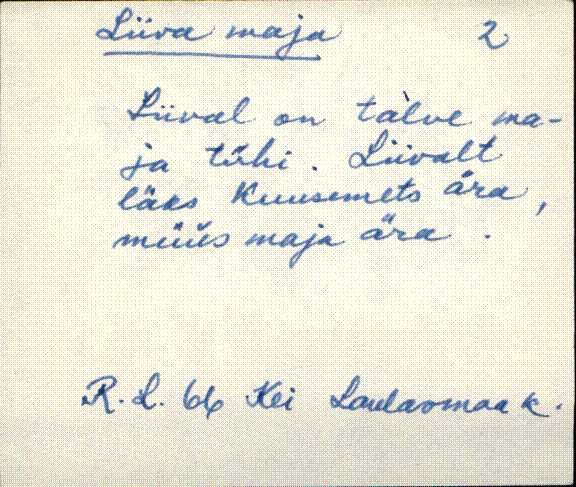 Liiva maja 2
Liival on tàlve ma-
ja tühi. Liivalt
läks Kuusemets ära,
müüs maja ära.
R. L. 66 Kei Laulasmaa k.